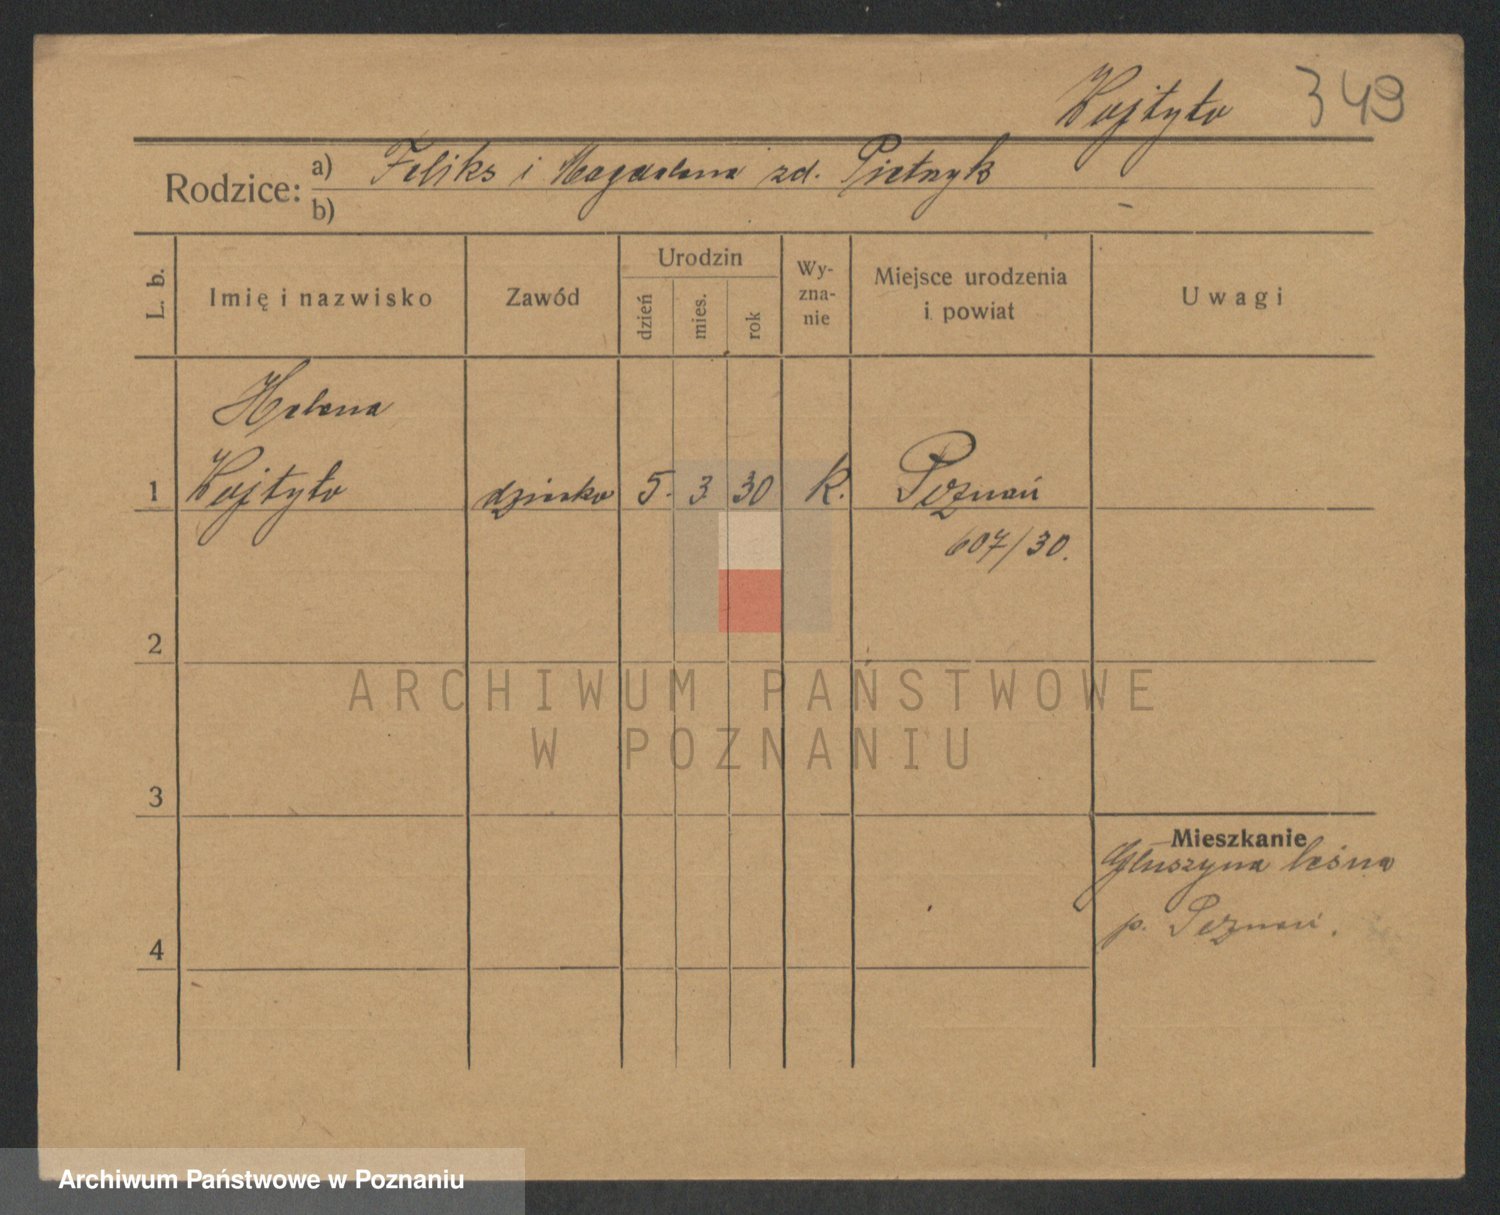 Wojtyło 349
Rodzice: a) Feliks i Magdalena zd. Pietrzyk
b)
L. b.
Imię i nazwisko
Zawód
Urodzin
dzień
mies.
rok
Wy-
zna-
nie
Miejsce urodzenia
i powiat
Uwagi
Helena
1 Wojtyło dziecko 5. 3. 30 k. Poznań
607/30.
2
ARCHIWUM PAŃSTWOWE
W POZNANIU
3
Mieszkanie
Głuszyna leśna
p. Poznań.
4
Archiwum Państwowe w Poznaniu